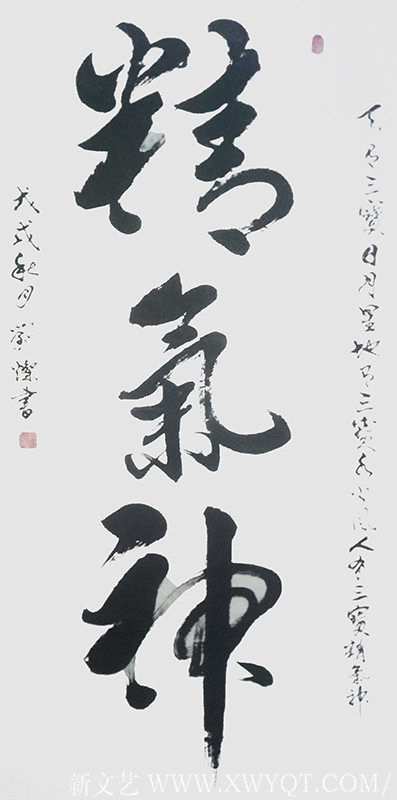 天有三寶日月星地有三寶水火風人有三寶精氣神
精氣神
戊戌秋月劉燦書
新文艺 WWW.XWYQT.COM/